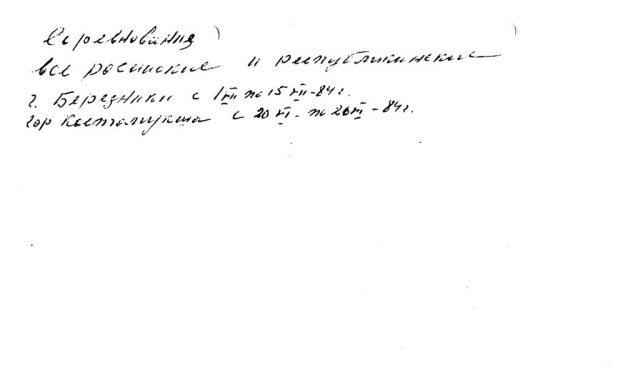 Соревнования
все росийские и республиканские
г. Березники с 1 VII по 15 VII-84 г.
гор Костамукша с 20 VI - по 26 VI - 84 г.